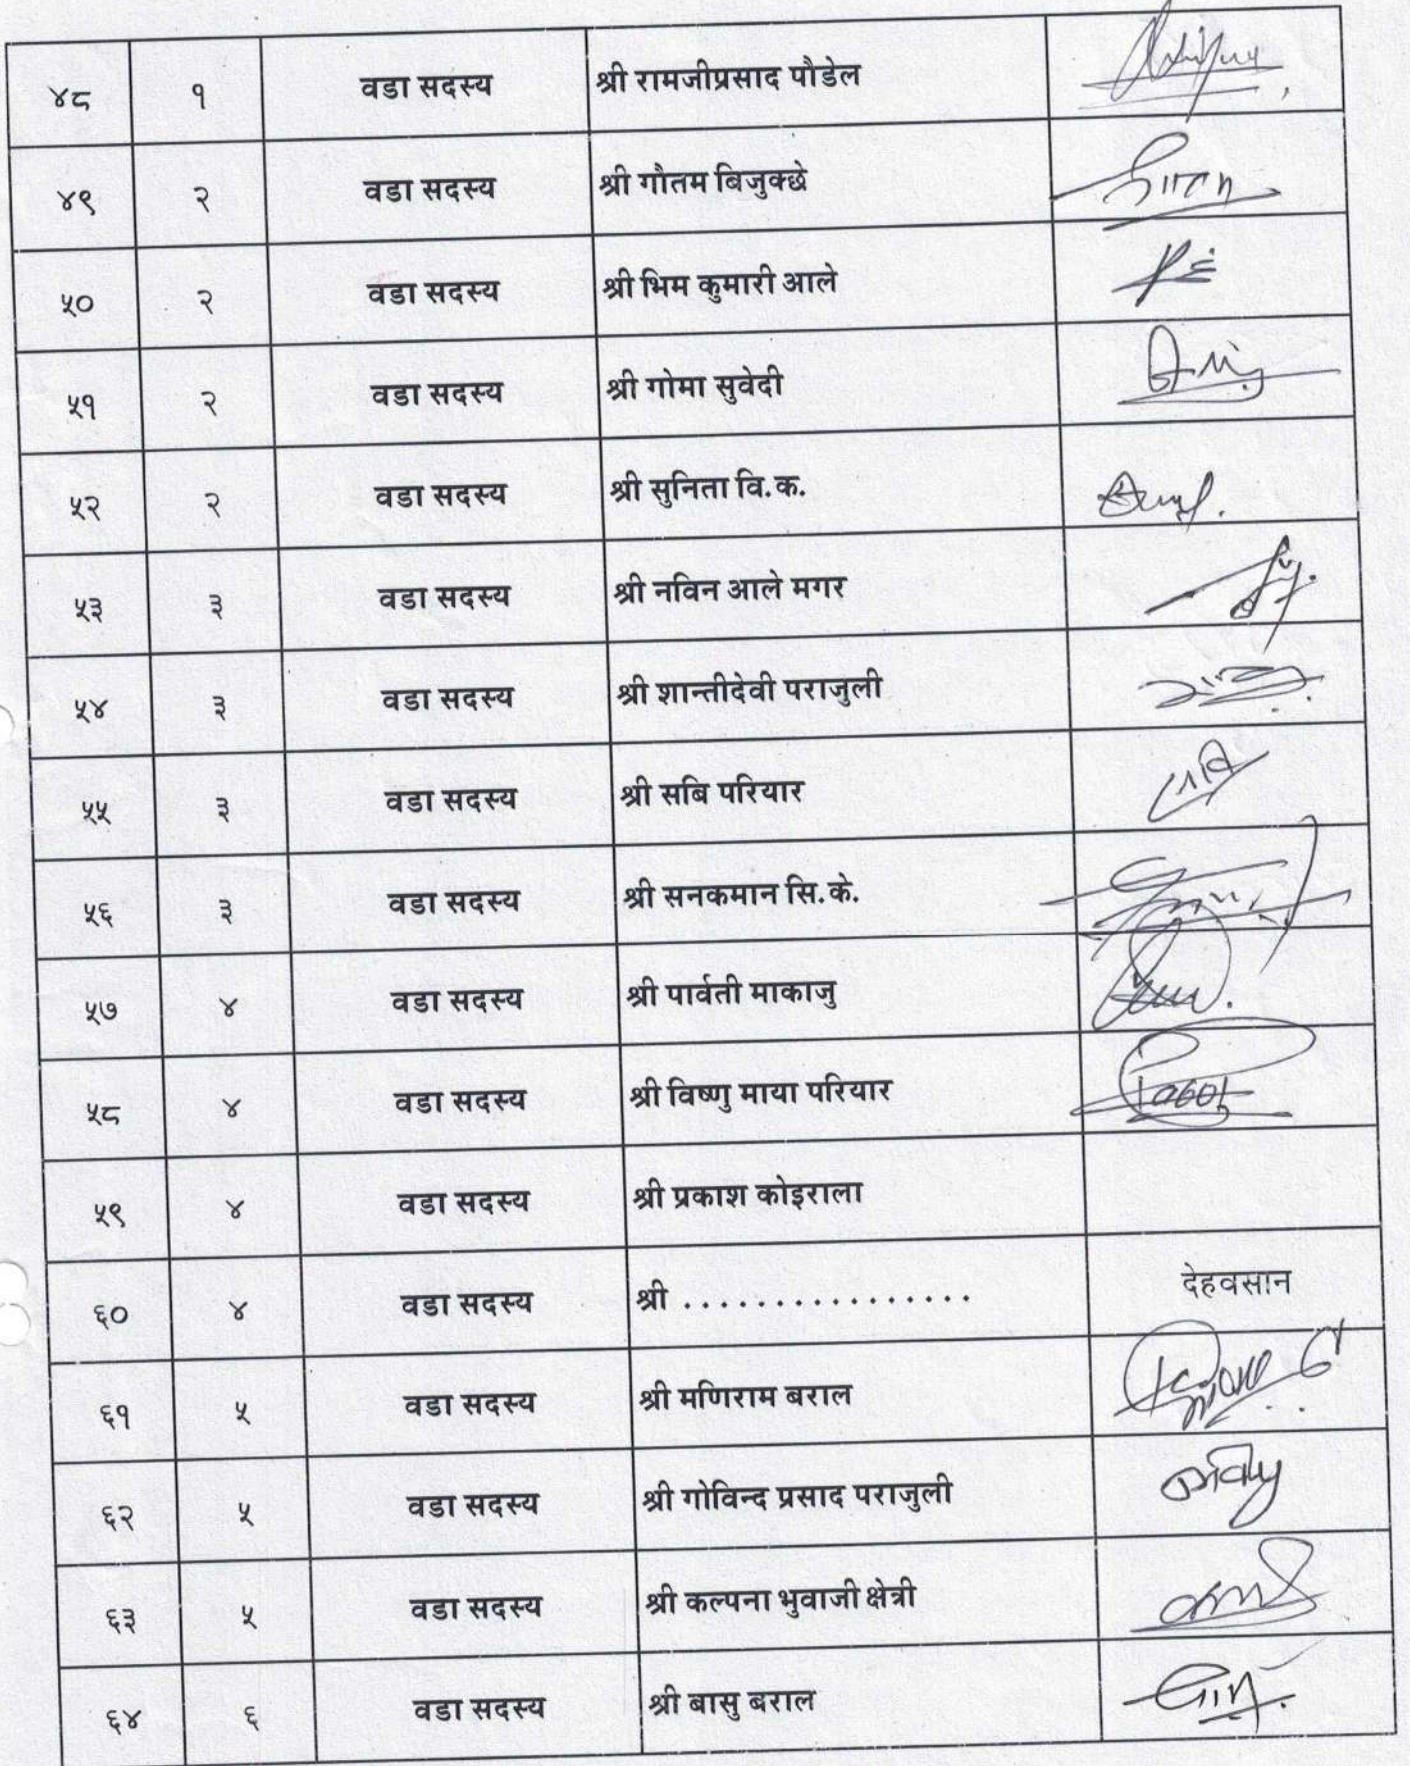 ४८ १ वडा सदस्य श्री रामजीप्रसाद पौडेल
४९ २ वडा सदस्य श्री गौतम बिजुक्छे
५० २ वडा सदस्य श्री भिम कुमारी आले
५१ २ वडा सदस्य श्री गोमा सुवेदी
५२ २ वडा सदस्य श्री सुनिता वि.क.
५३ ३ वडा सदस्य श्री नविन आले मगर
५४ ३ वडा सदस्य श्री शान्तीदेवी पराजुली
५५ ३ वडा सदस्य श्री सबि परियार
५६ ३ वडा सदस्य श्री सनकमान सि.के.
५७ ४ वडा सदस्य श्री पार्वती माकाजु
५८ ४ वडा सदस्य श्री विष्णु माया परियार
५९ ४ वडा सदस्य श्री प्रकाश कोइराला
६० ४ वडा सदस्य श्री ................ देहवसान
६१ ५ वडा सदस्य श्री मणिराम बराल
६२ ५ वडा सदस्य श्री गोविन्द प्रसाद पराजुली
६३ ५ वडा सदस्य श्री कल्पना भुवाजी क्षेत्री
६४ ६ वडा सदस्य श्री बासु बराल